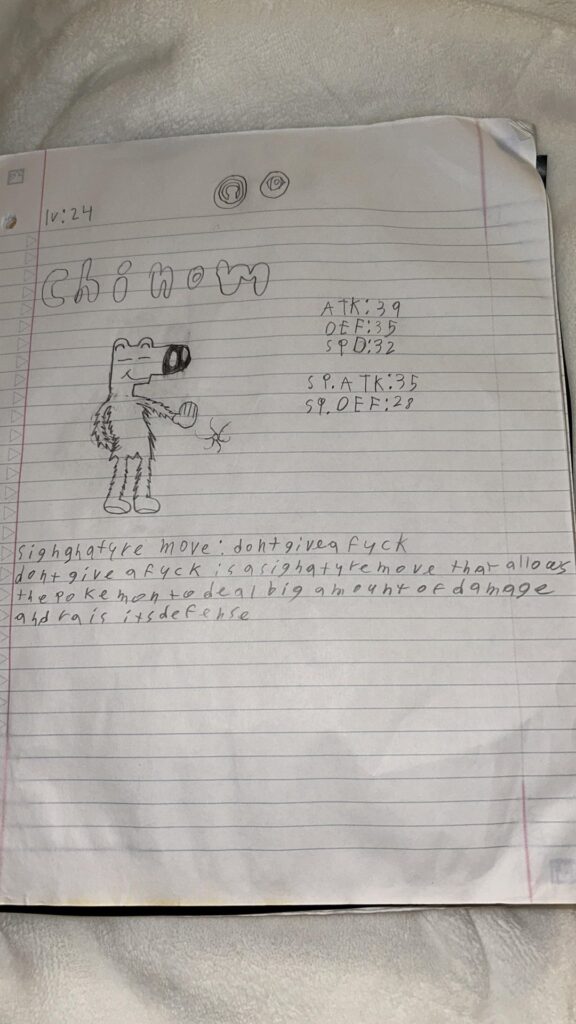 lv:24
chinom
ATK:39
DEF:35
SPD:32
SP.ATK:35
SP.DEF:28
sighghatyre move: dontgivea fyck
dont give a fyck is a sighatyre move that allows
the pokemon to deal big amount of damage
and rais its defense